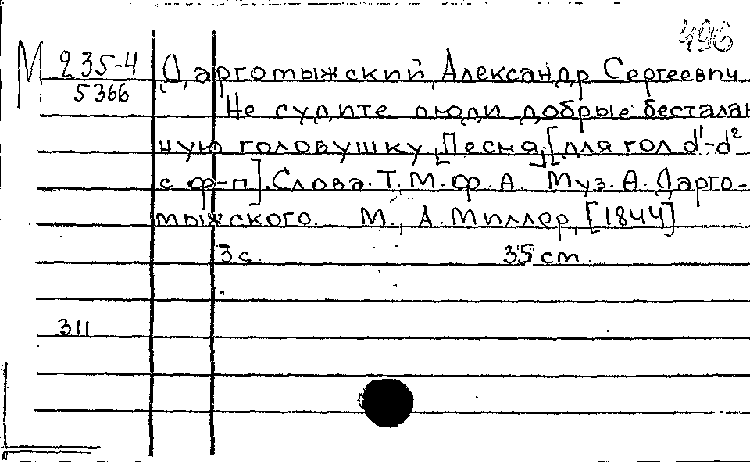 496
М 235-4
5366
Даргомыжский, Александр Сергеевич
Не судите люди добрые бесталан
ную головушку. Песня. [для гол. d¹-d²
с ф-п]. Слова Т. М. ф. А. Муз. А. Дарго-
мыжского. М., А. Миллер, [1844]
3 с. 35 см.
311